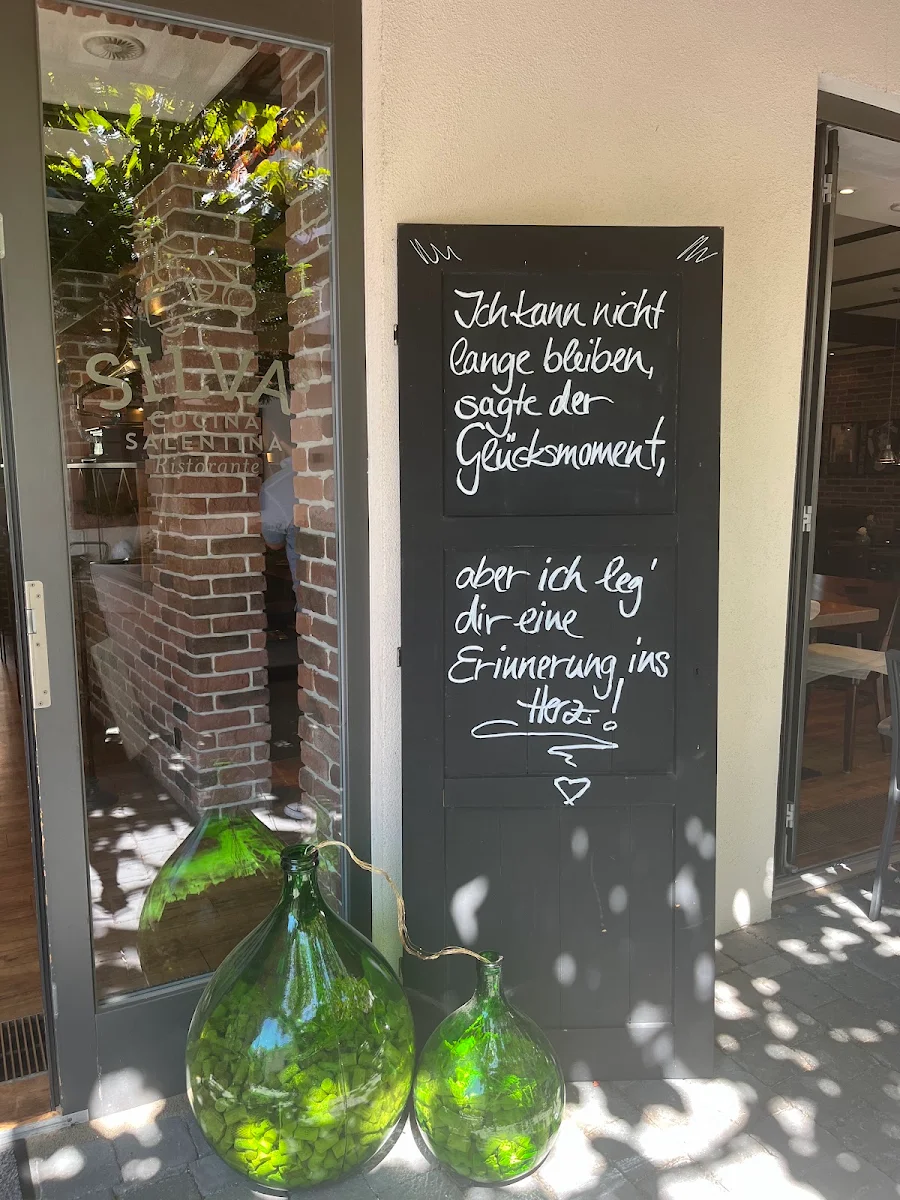 SILVA
CUCINA
SALENTINA
Ristorante
Ich kann nicht
lange bleiben,
sagte der
Glücksmoment,
aber ich leg'
dir eine
Erinnerung ins
Herz!